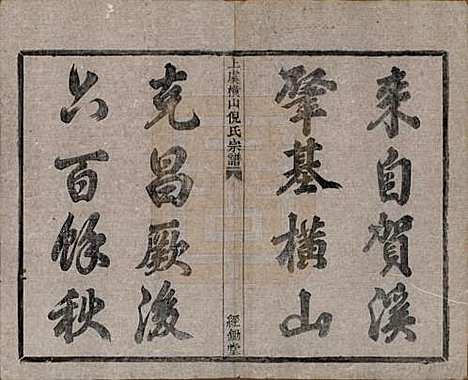 來自賀溪
肇基橫山
上虞橫山倪氏宗譜
經鋤堂
克昌厥後
六百餘秋